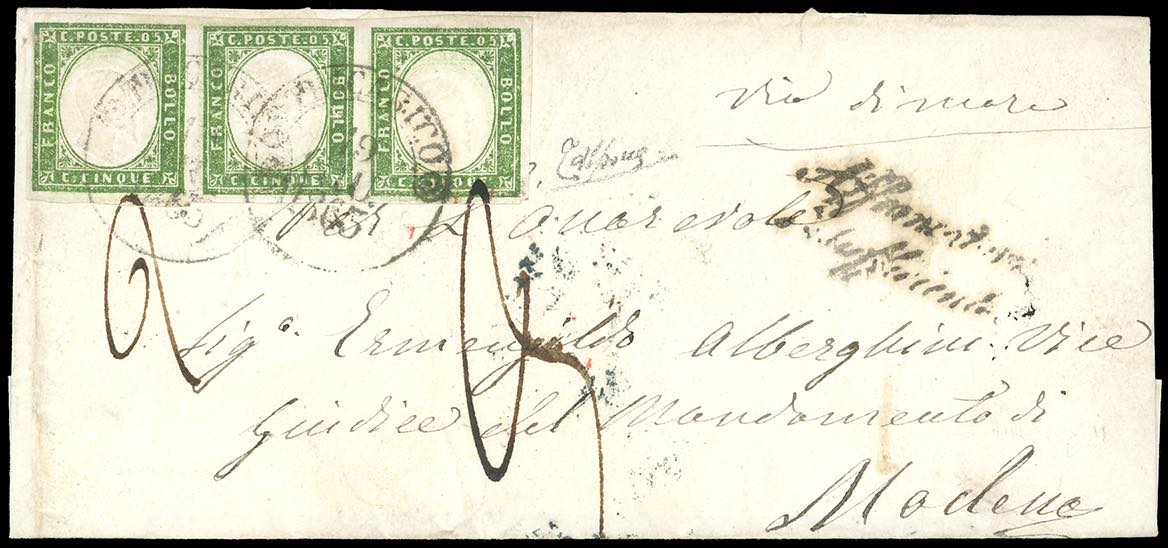 C. POSTE. 05.
FRANCO
BOLLO
C. CINQUE
C. POSTE. 05.
FRANCO
BOLLO
C. CINQUE
C. POSTE. 05.
FRANCO
BOLLO
C. CINQUE
19
via di mare
Affrancatura
insufficiente
Per L'onorevole
Sigr Ermenegildo Alberghini Vice
Giudice del Mandamento di
Modena